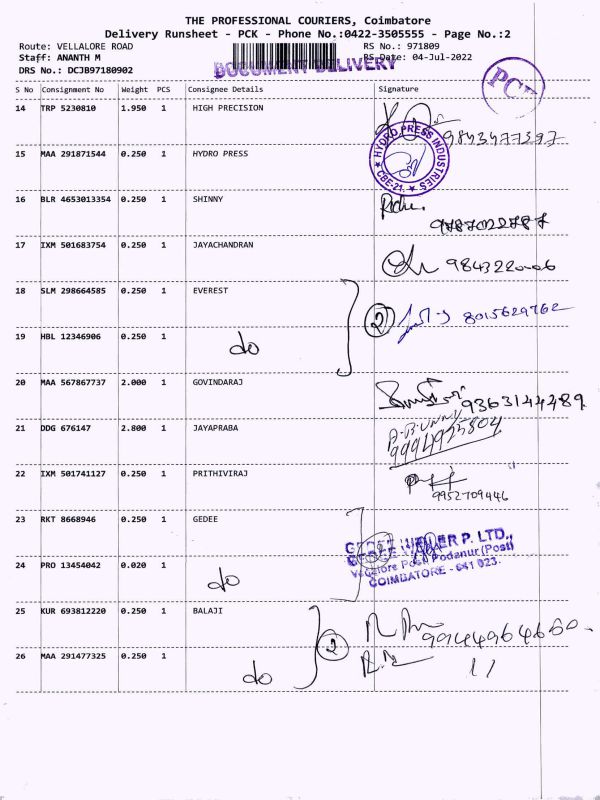 THE PROFESSIONAL COURIERS, Coimbatore
Delivery Runsheet - PCK - Phone No.:0422-3505555 - Page No.:2
Route: VELLALORE ROAD RS No.: 971809
Staff: ANANTH M DOCUMENT DELIVERY RS Date: 04-Jul-2022
DRS No.: DCJB97180902 PCK
S No Consignment No Weight PCS Consignee Details Signature
14 TRP 5230810 1.950 1 HIGH PRECISION 9843477397
15 MAA 291871544 0.250 1 HYDRO PRESS ★ HYDRO PRESS INDUSTRIES ★ CBE-21.
16 BLR 4653013354 0.250 1 SHINNY 9787022787
17 IXM 501683754 0.250 1 JAYACHANDRAN
18 SLM 298664585 0.250 1 EVEREST 2 8015629762
19 HBL 12346906 0.250 1 do
20 MAA 567867737 2.000 1 GOVINDARAJ 9363144489
21 DDG 676147 2.800 1 JAYAPRABA
22 IXM 501741127 0.250 1 PRITHIVIRAJ 9952709446
23 RKT 8668946 0.250 1 GEDEE
P. LTD.,
24 PRO 13454042 0.020 1 do Podanur (Post)
COIMBATORE - 641 023.
25 KUR 693812220 0.250 1 BALAJI 2
26 MAA 291477325 0.250 1 do 11